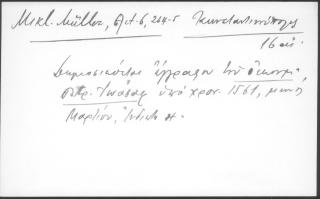 Mikl.-Müller, Act. 6, 264-5 Κωνσταντινούπολις
16 αἰ.
Δημοσιεύεται ἔγγραφον τοῦ οἰκουμ.
πατρ. Ἰωάσαφ ὑπὸ χρον. 1561, μηνὶ
Μαρτίου,